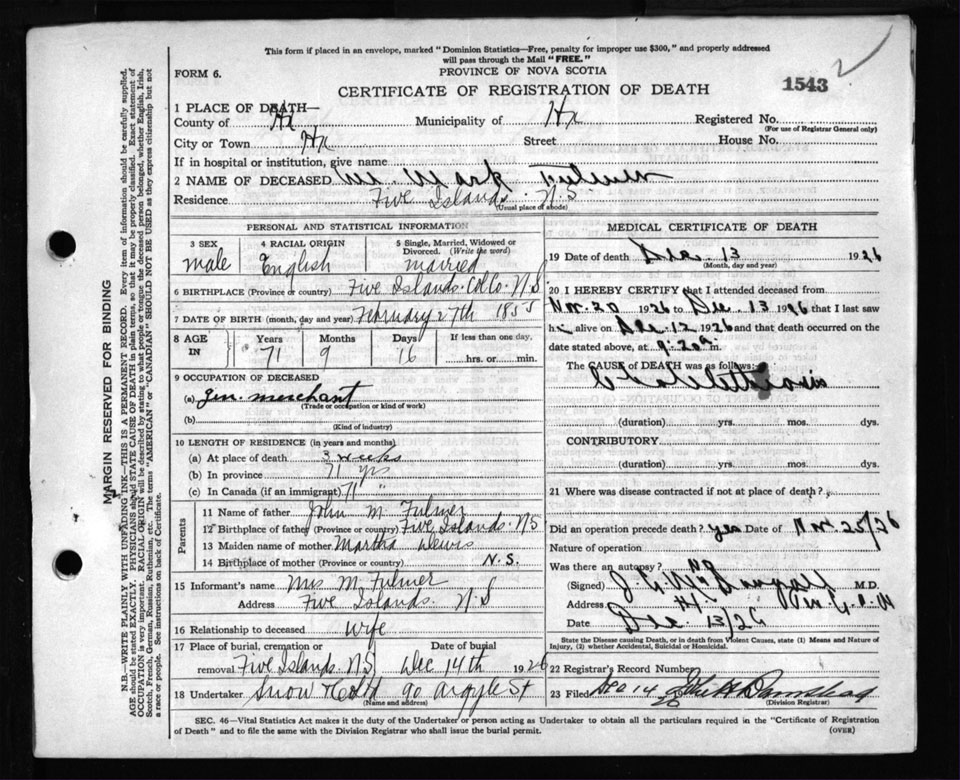 This form if placed in an envelope, marked "Dominion Statistics—Free, penalty for improper use $300," and properly addressed
will pass through the Mail "FREE."
FORM 6.
PROVINCE OF NOVA SCOTIA
1543
2
CERTIFICATE OF REGISTRATION OF DEATH
1 PLACE OF DEATH—
County of Hx Municipality of Hx Registered No.
(For use of Registrar General only)
City or Town Hx Street House No.
If in hospital or institution, give name
2 NAME OF DECEASED Mark Fulmer
Residence Five Islands. N.S
(Usual place of abode)
PERSONAL AND STATISTICAL INFORMATION
3 SEX
male
4 RACIAL ORIGIN
English
5 Single, Married, Widowed or
Divorced. (Write the word)
married
6 BIRTHPLACE (Province or country) Five Islands. Col Co. N.S.
7 DATE OF BIRTH (month, day and year) February 27th 1855
8 AGE
IN
Years
71
Months
9
Days
16
If less than one day
hrs. or min.
9 OCCUPATION OF DECEASED
(a) Gen. merchant
(Trade or occupation or kind of work)
(b)
(Kind of industry)
10 LENGTH OF RESIDENCE (in years and months)
(a) At place of death 3 weeks
(b) In province 71 yrs
(c) In Canada (if an immigrant) 71 "
Parents
11 Name of father John M. Fulmer
12 Birthplace of father (Province or country) Five Islands. N.S
13 Maiden name of mother Martha Lewis
14 Birthplace of mother (Province or country) N.S.
15 Informant's name Mrs M. Fulmer
Address Five Islands. N.S
16 Relationship to deceased wife
17 Place of burial, cremation or
removal Five Islands. N.S
Date of burial
Dec 14th 1926
18 Undertaker Snow & Co Ltd 90 Argyle St
(Name and address)
MEDICAL CERTIFICATE OF DEATH
19 Date of death Dec. 13 1926
(Month, day and year)
20 I HEREBY CERTIFY that I attended deceased from
Nov. 20 1926 to Dec. 13 1926 that I last saw
h alive on Dec. 12 1926 and that death occurred on the
date stated above, at 9.20 a m.
The CAUSE of DEATH was as follows:
(duration) yrs. mos. dys.
CONTRIBUTORY
(duration) yrs. mos. dys.
21 Where was disease contracted if not at place of death?
Did an operation precede death? yes Date of Nov. 25/26
Nature of operation
Was there an autopsy? No
(Signed) M.D.
Address Hx
Date Dec. 13/26
State the Disease causing Death, or in death from Violent Causes, state (1) Means and Nature of
Injury, (2) whether Accidental, Suicidal or Homicidal.
22 Registrar's Record Number
23 Filed Dec 14 26
(Division Registrar)
SEC. 46—Vital Statistics Act makes it the duty of the Undertaker or person acting as Undertaker to obtain all the particulars required in the "Certificate of Registration
of Death" and to file the same with the Division Registrar who shall issue the burial permit.
(OVER)
MARGIN RESERVED FOR BINDING
N.B.—WRITE PLAINLY WITH UNFADING INK—THIS IS A PERMANENT RECORD. Every item of information should be carefully supplied.
AGE should be stated EXACTLY. PHYSICIANS should STATE CAUSE OF DEATH in plain terms, so that it may be properly classified. Exact statement of
OCCUPATION is very important. RACIAL ORIGIN will be described by stating to what people or tongue the deceased person belonged, whether English, Irish,
Scotch, French, German, Russian, Ruthenian, etc. The terms "AMERICAN" or "CANADIAN" SHOULD NOT BE USED as they express citizenship but not
a race or people. See instructions on back of Certificate.